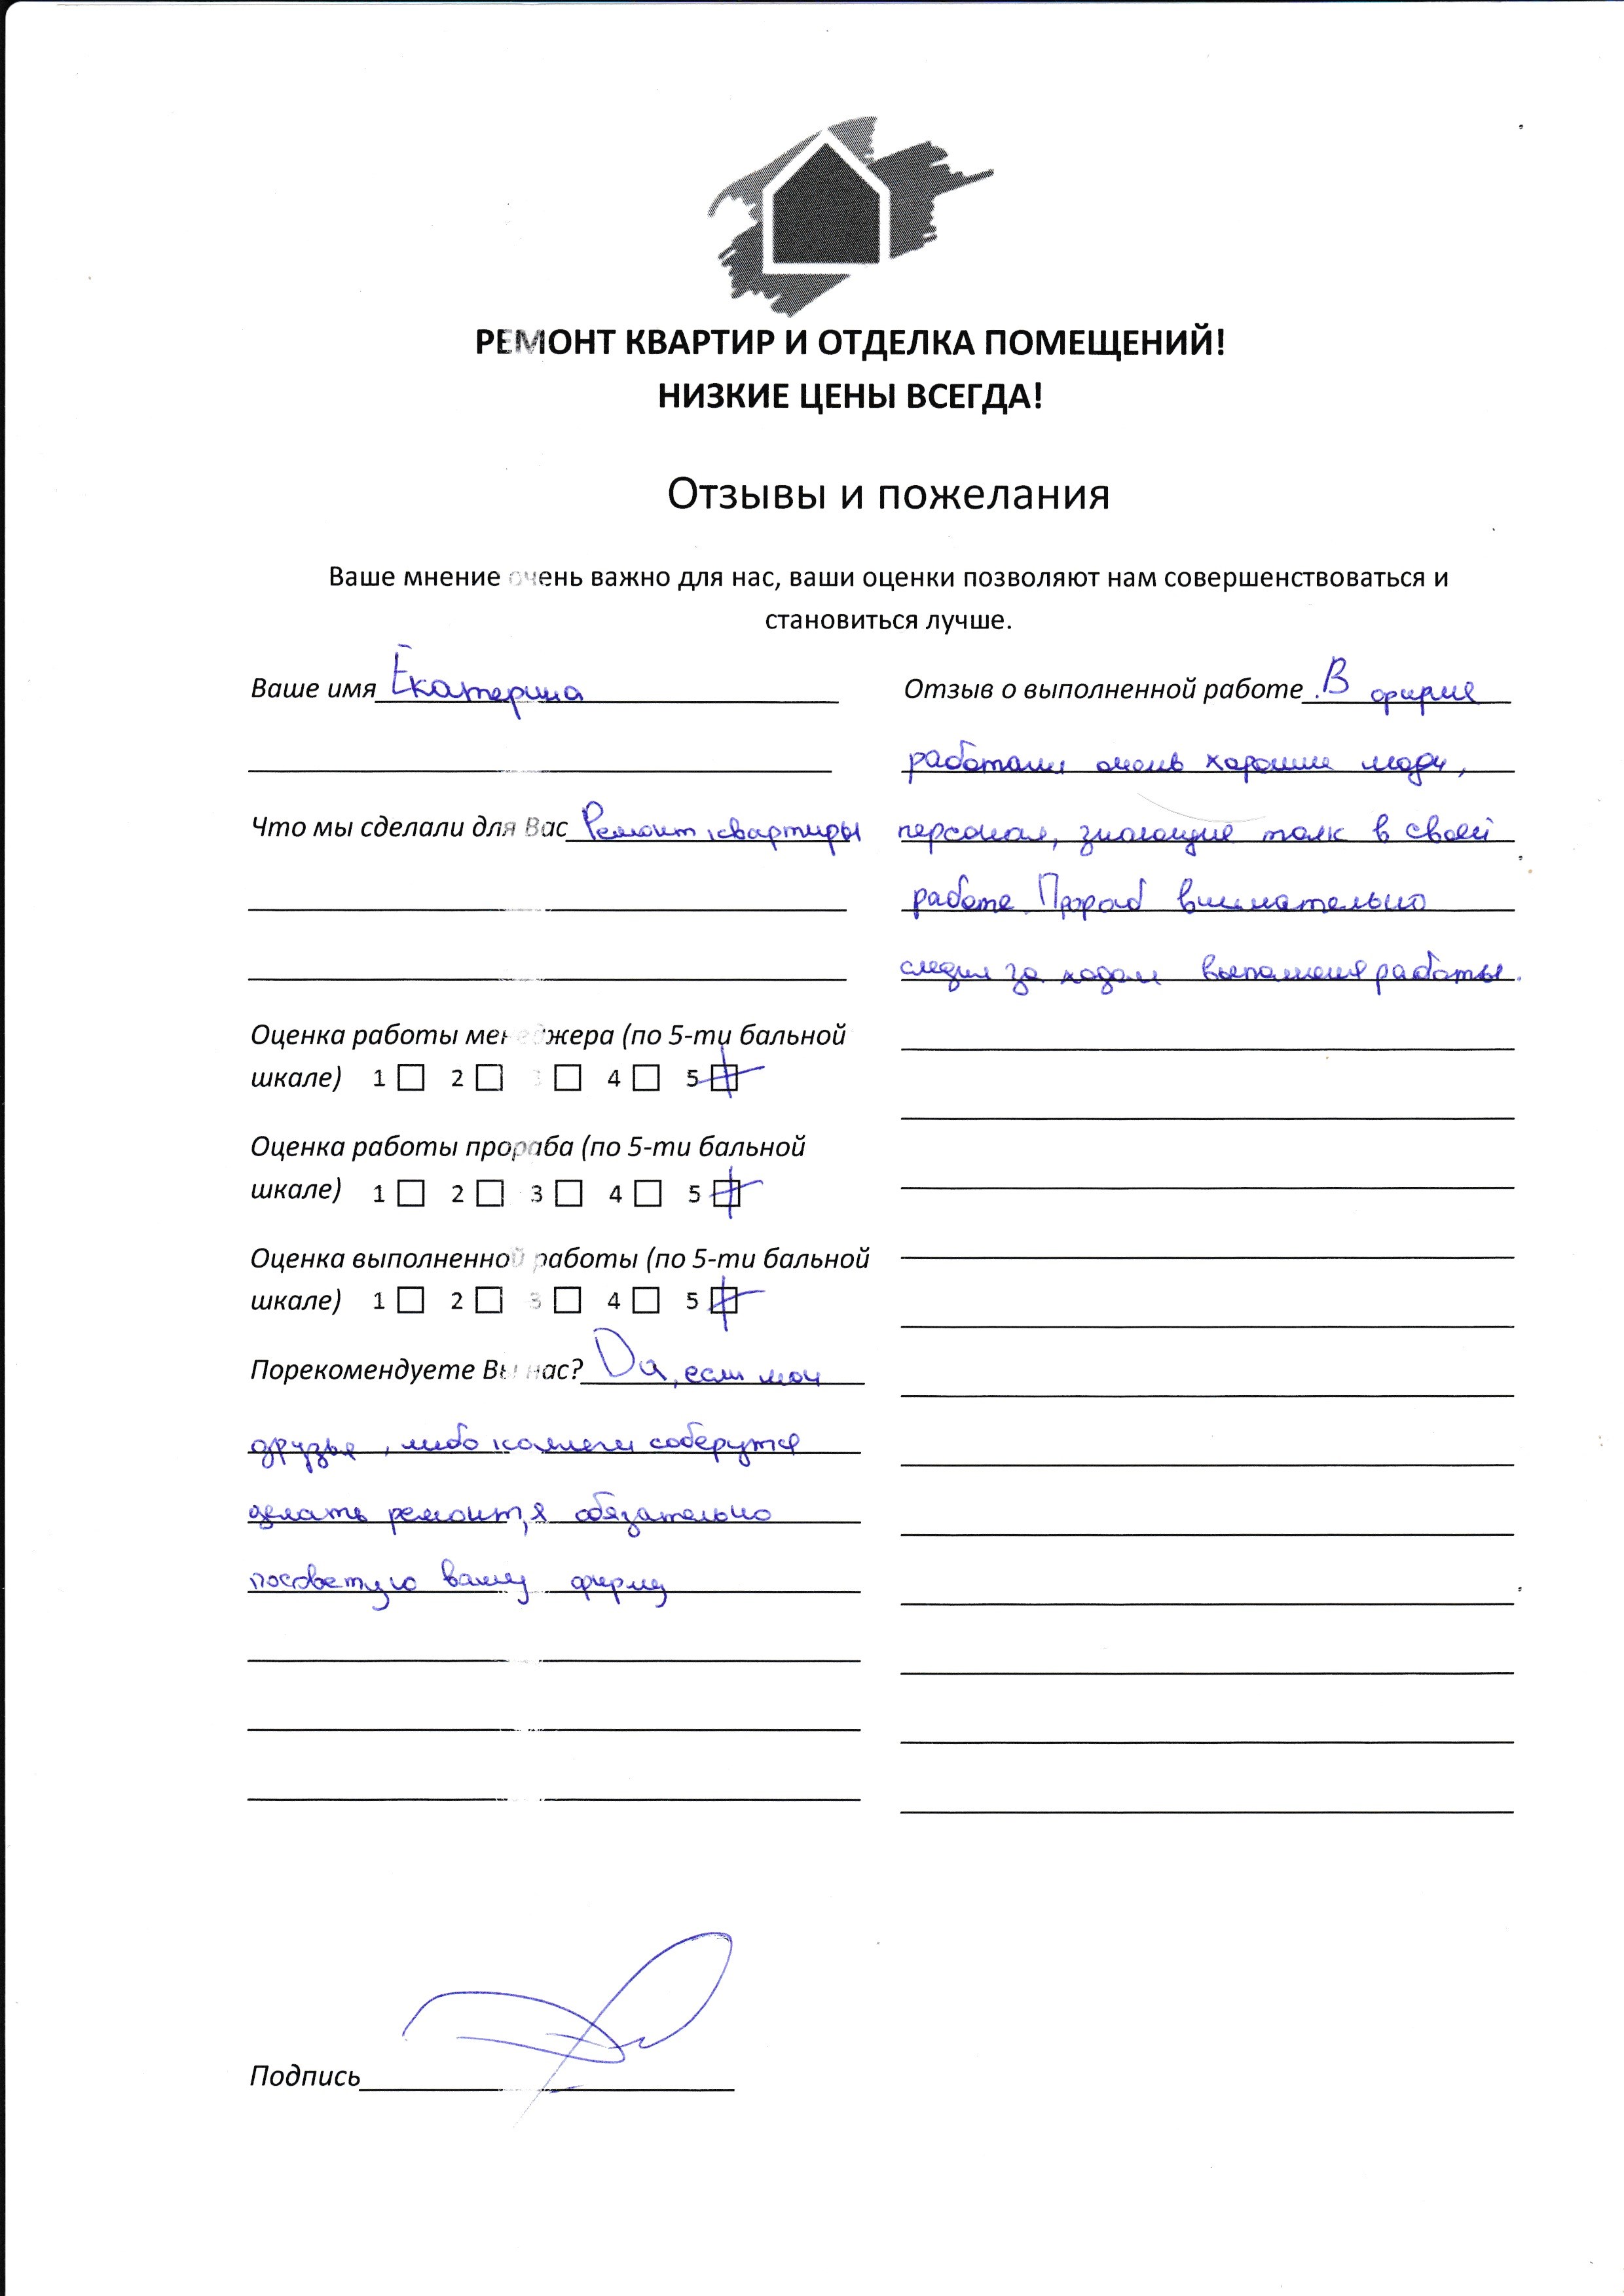 РЕМОНТ КВАРТИР И ОТДЕЛКА ПОМЕЩЕНИЙ!
НИЗКИЕ ЦЕНЫ ВСЕГДА!
Отзывы и пожелания
Ваше мнение очень важно для нас, ваши оценки позволяют нам совершенствоваться и
становиться лучше.
Ваше имя Екатерина
Что мы сделали для Вас Ремонт квартиры
Оценка работы менеджера (по 5-ти бальной
шкале) 1 2 3 4 5
Оценка работы прораба (по 5-ти бальной
шкале) 1 2 3 4 5
Оценка выполненной работы (по 5-ти бальной
шкале) 1 2 3 4 5
Порекомендуете Вы нас? Да, если мои
друзья, либо коллеги соберутся
делать ремонт, я обязательно
посоветую вашу фирму
Отзыв о выполненной работе В фирме
работали очень хорошие люди,
персонал, знающие толк в своей
работе. Прораб внимательно
следил за ходом выполнения работы.
Подпись